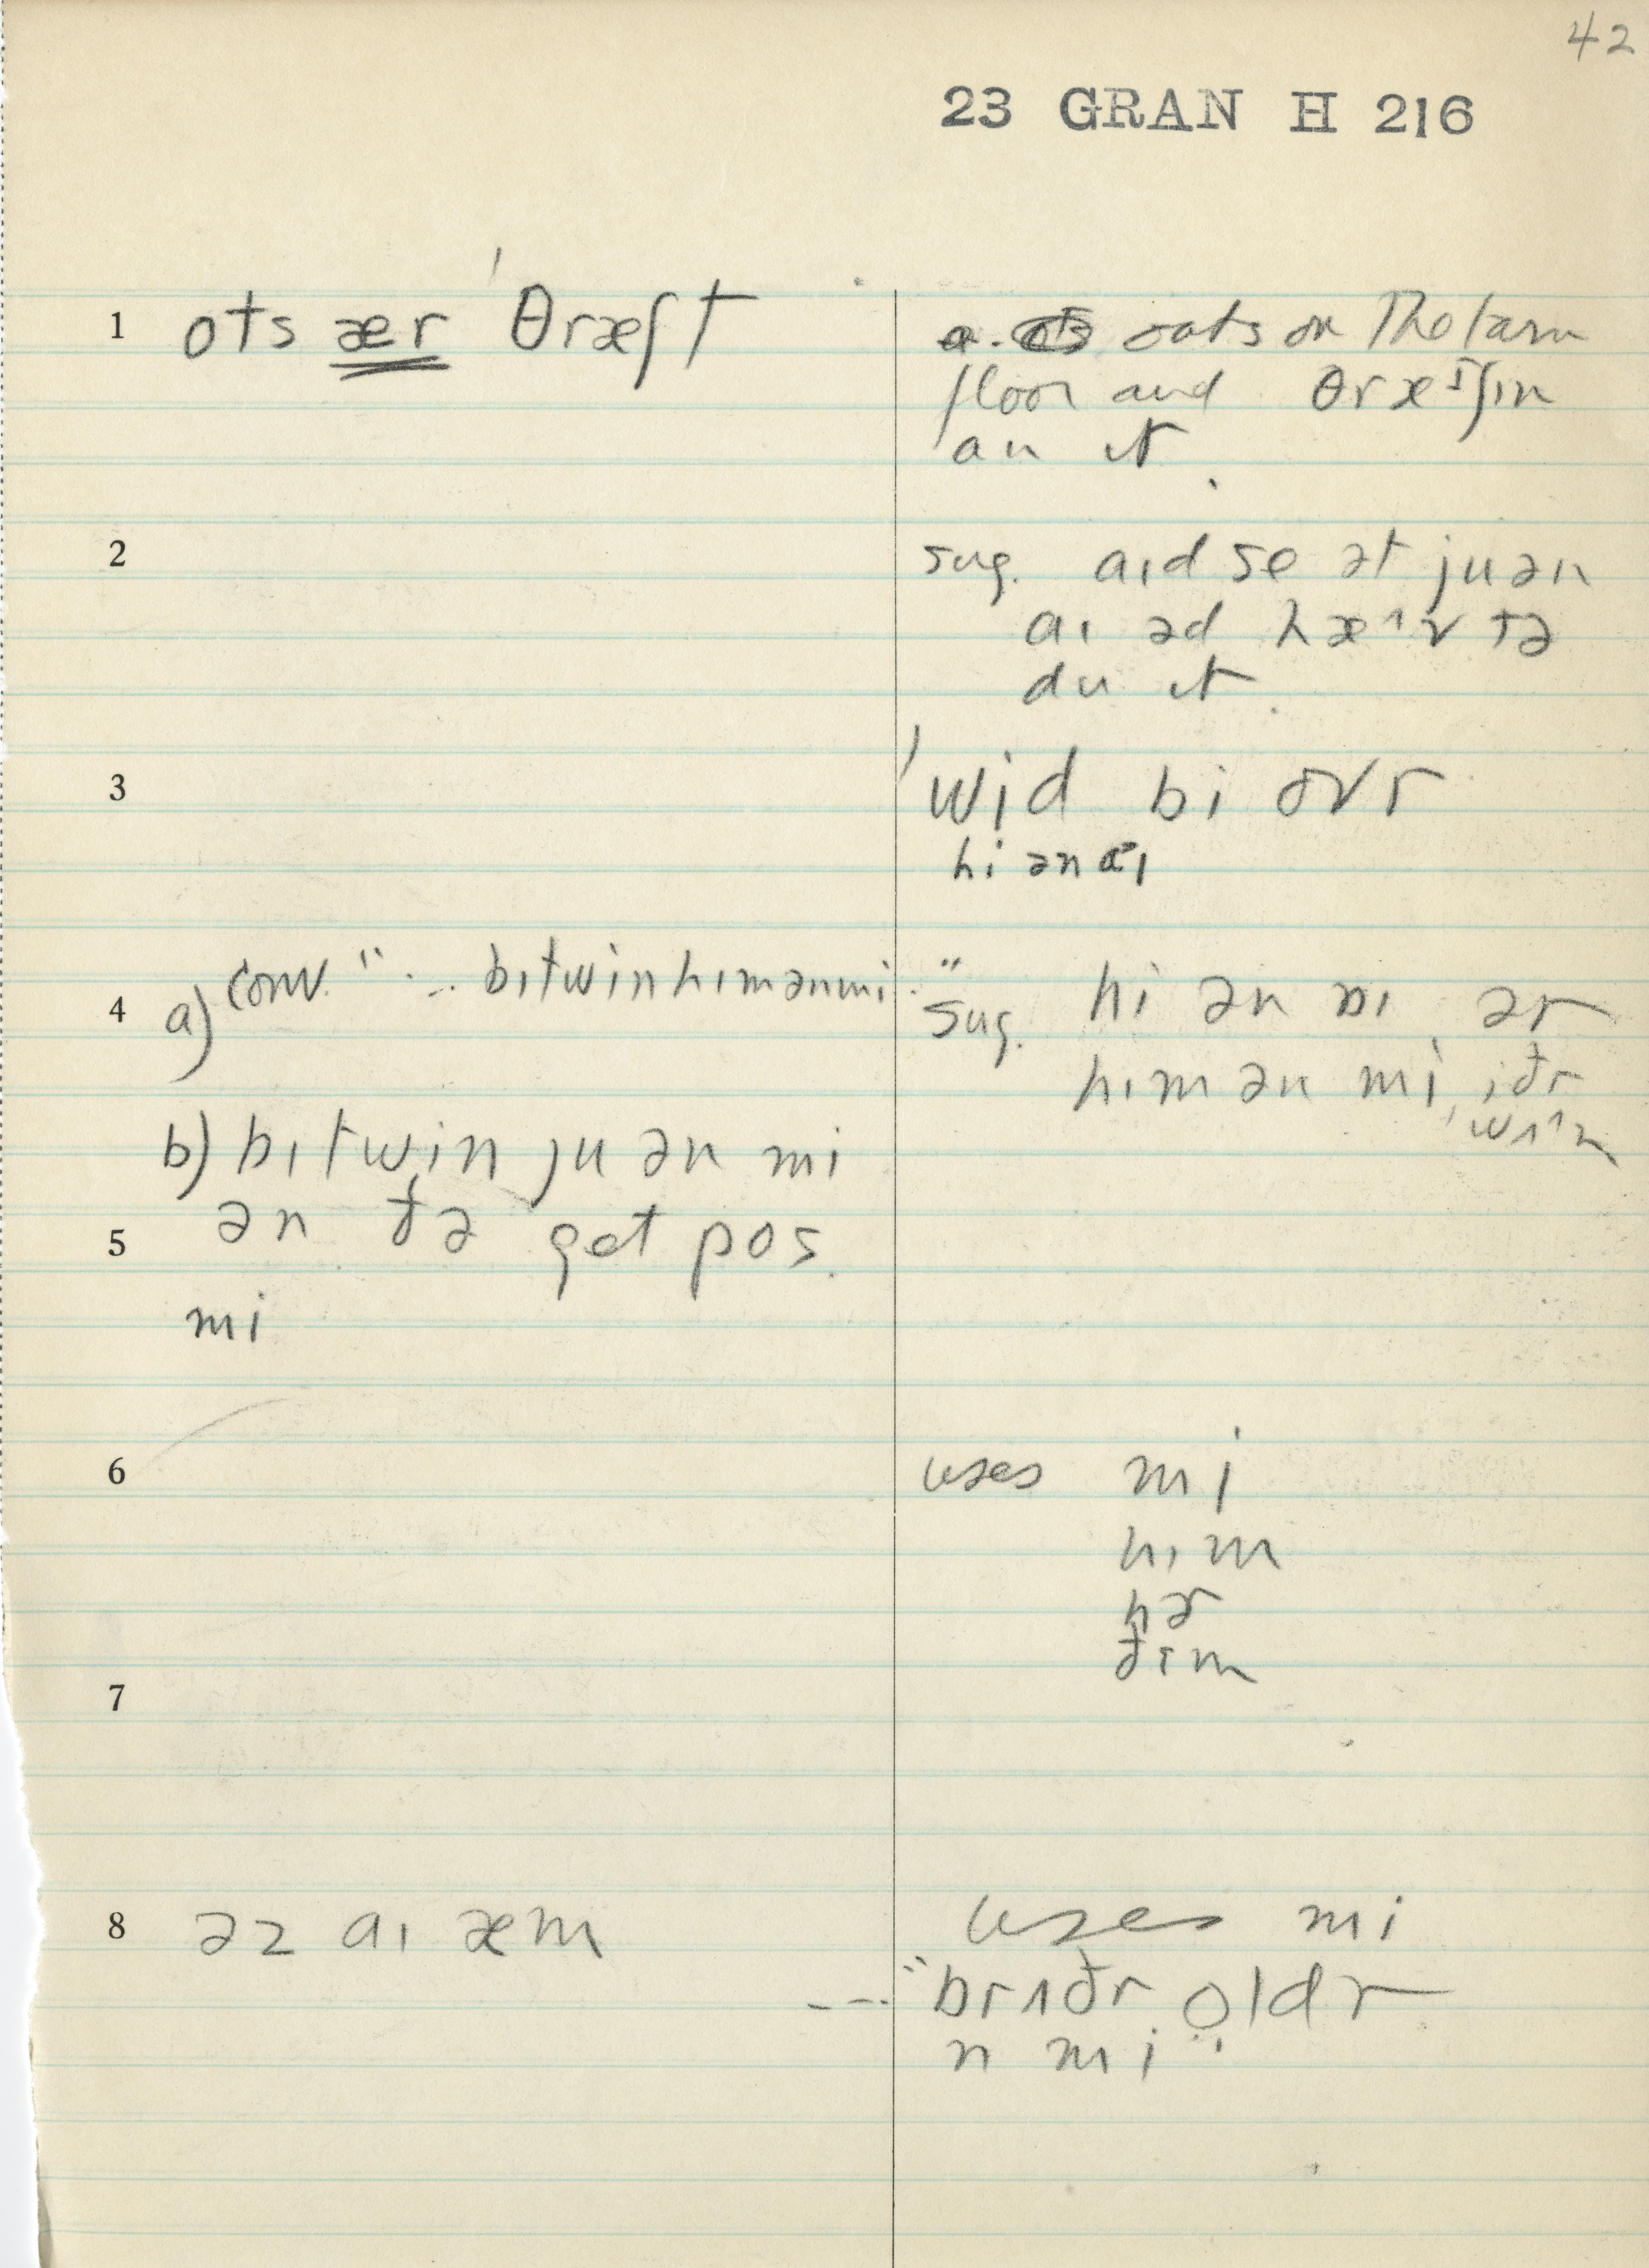 42
23 GRAN H 216
1 ots ær 'θræʃt
oats on the barn
floor and θræ ʃɪn
an ɪt.
2
sug. aɪd se ət juən
aɪ əd hæ^v tə
du ɪt.
3
'wid bi ovr
hi ən aɪ
4 a) conv. " ... bɪtwin hɪm ən mi.
" sug. hi ən ɑɪ ər
hɪm ən mi, iðr
wʌ^n
b) bɪtwin ju ən mi
5 ən ðə get pos.
mi
6
uses mi
hɪm
hər
ðɪm
7
8 əz aɪ æm
uses mi
--- "brʌðr oldr
n mi"